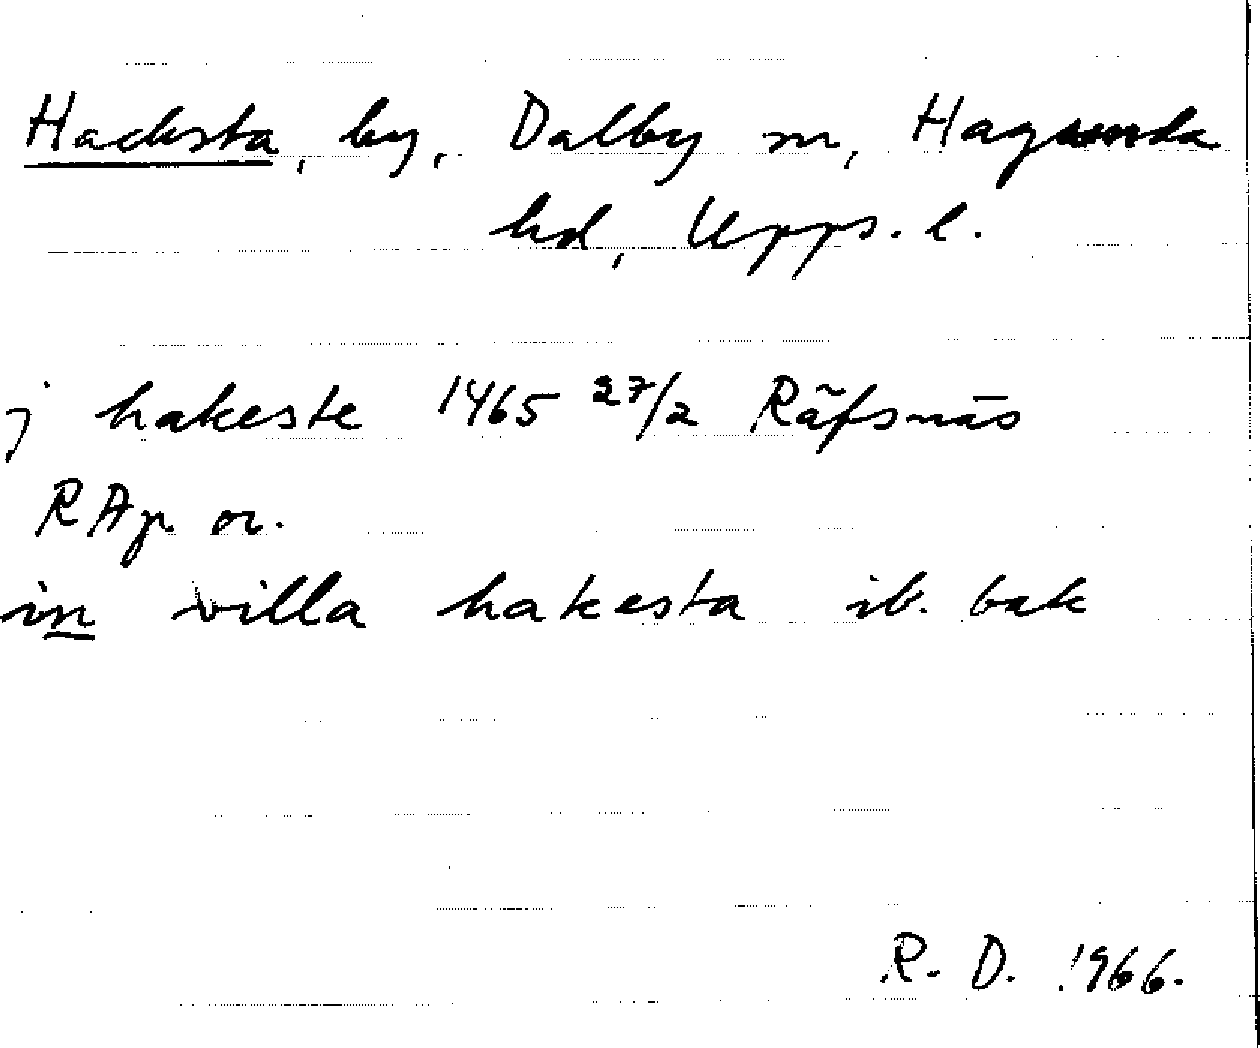 Hacksta, by, Dalby sn, Hagunda
hd, Upps. l.
j hakeste 1465 27/2 Räfsnäs
RAp. or.
in villa hakesta ib. bak
R. D. 1966.